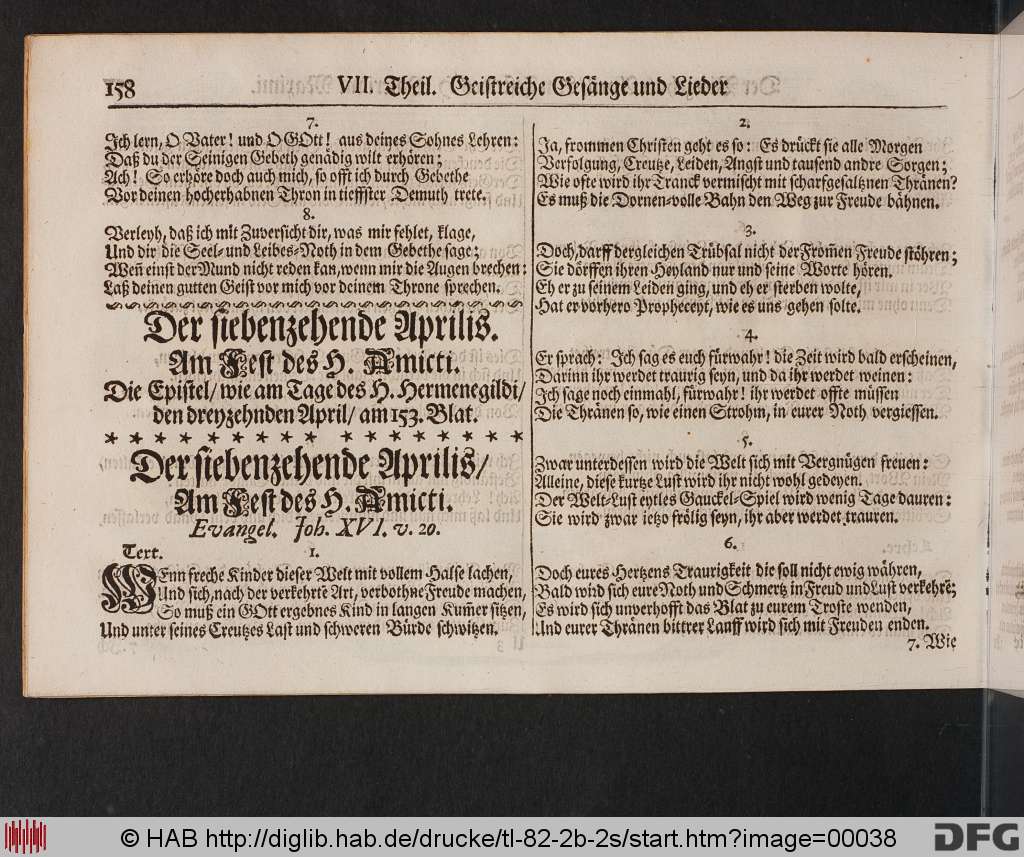 158
VII. Theil. Geistreiche Gesänge und Lieder
7.
Ich lern, O Vater! und O GOtt! aus deines Sohnes Lehren:
Daß du der Seinigen Gebeth genädig wilt erhören;
Ach! So erhöre doch auch mich, so offt ich durch Gebethe
Vor deinen hocherhabnen Thron in tieffster Demuth trete.
8.
Verleyh, daß ich mit Zuversicht dir, was mir fehlet, klage,
Und dir die Seel- und Leibes-Noth in dem Gebethe sage;
Weñ einst der Mund nicht reden kan, wenn mir die Augen brechen:
Laß deinen gutten Geist vor mich vor deinem Throne sprechen.
Der siebenzehende Aprilis.
Am Fest des H. Amicti.
Die Epistel/ wie am Tage des H. Hermenegildi/
den dreyzehnden April/ am 153. Blat.
* * * * * * * * * * * * * * * * *
Der siebenzehende Aprilis/
Am Fest des H. Amicti.
Evangel. Joh. XVI. v. 20.
Text. 1.
WEnn freche Kinder dieser Welt mit vollem Halse lachen,
Und sich, nach der verkehrtē Art, verbothne Freude machen,
So muß ein GOtt ergebnes Kind in langen Kum̃er sitzen,
Und unter seines Creutzes Last und schweren Bürde schwitzen.
2.
Ja, frommen Christen geht es so: Es drückt sie alle Morgen
Verfolgung, Creutze, Leiden, Angst und tausend andre Sorgen;
Wie ofte wird ihr Tranck vermischt mit scharfgesaltznen Thränen?
Es muß die Dornen-volle Bahn den Weg zur Freude bähnen.
3.
Doch, darff dergleichen Trübsal nicht der From̃en Freude stöhren;
Sie dörffen ihren Heyland nur und seine Worte hören.
Eh er zu seinem Leiden ging, und eh er sterben wolte,
Hat er vorhero Propheceyt, wie es uns gehen solte.
4.
Er sprach: Ich sag es euch fürwahr! die Zeit wird bald erscheinen,
Darinn ihr werdet traurig seyn, und da ihr werdet weinen:
Ich sage noch einmahl, fürwahr! ihr werdet offte müssen
Die Thränen so, wie einen Strohm, in eurer Noth vergiessen.
5.
Zwar unterdessen wird die Welt sich mit Vergnügen freuen:
Alleine, diese kurtze Lust wird ihr nicht wohl gedeyen.
Der Welt-Lust eytles Gauckel-Spiel wird wenig Tage dauren:
Sie wird zwar ietzo frölig seyn, ihr aber werdet trauren.
6.
Doch eures Hertzens Traurigkeit die soll nicht ewig währen,
Bald wird sich eure Noth und Schmertz in Freud und Lust verkehrē;
Es wird sich unverhofft das Blat zu eurem Troste wenden,
Und eurer Thränen bittrer Lauff wird sich mit Freuden enden.
7. Wie
© HAB http://diglib.hab.de/drucke/tl-82-2b-2s/start.htm?image=00038
DFG